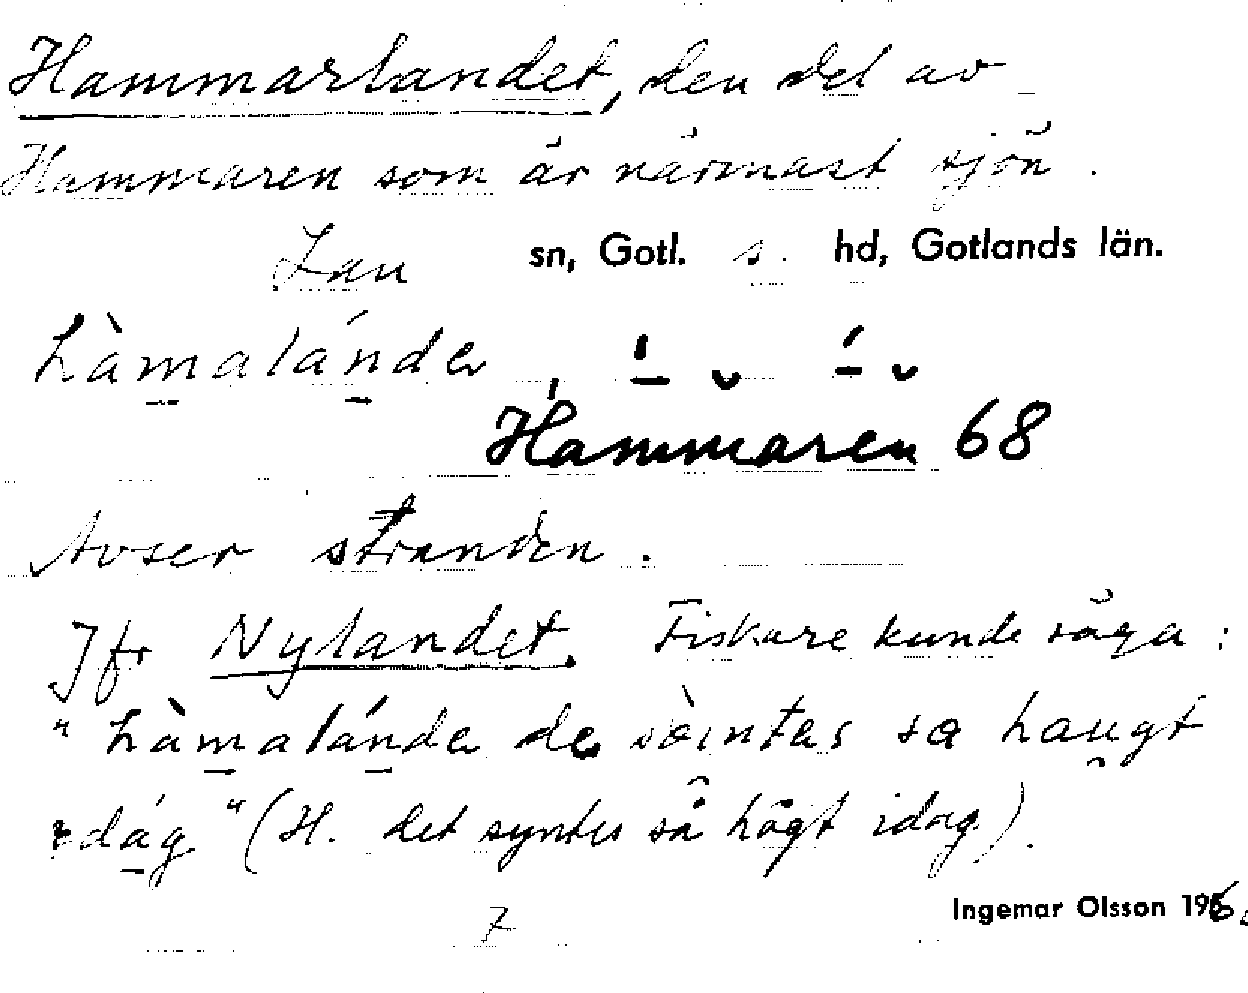 Hammarlandet, den del av
Hammaren som är närmast sjön.
Lau sn, Gotl. s. hd, Gotlands län.
hàmalánde,
Hammaren 68
Avser stranden.
Jfr Nylandet. Fiskare kunde säga:
"hàmalánde de sàintes sa haugt
idág" (H. det syntes så högt idag).
Ingemar Olsson 196
7